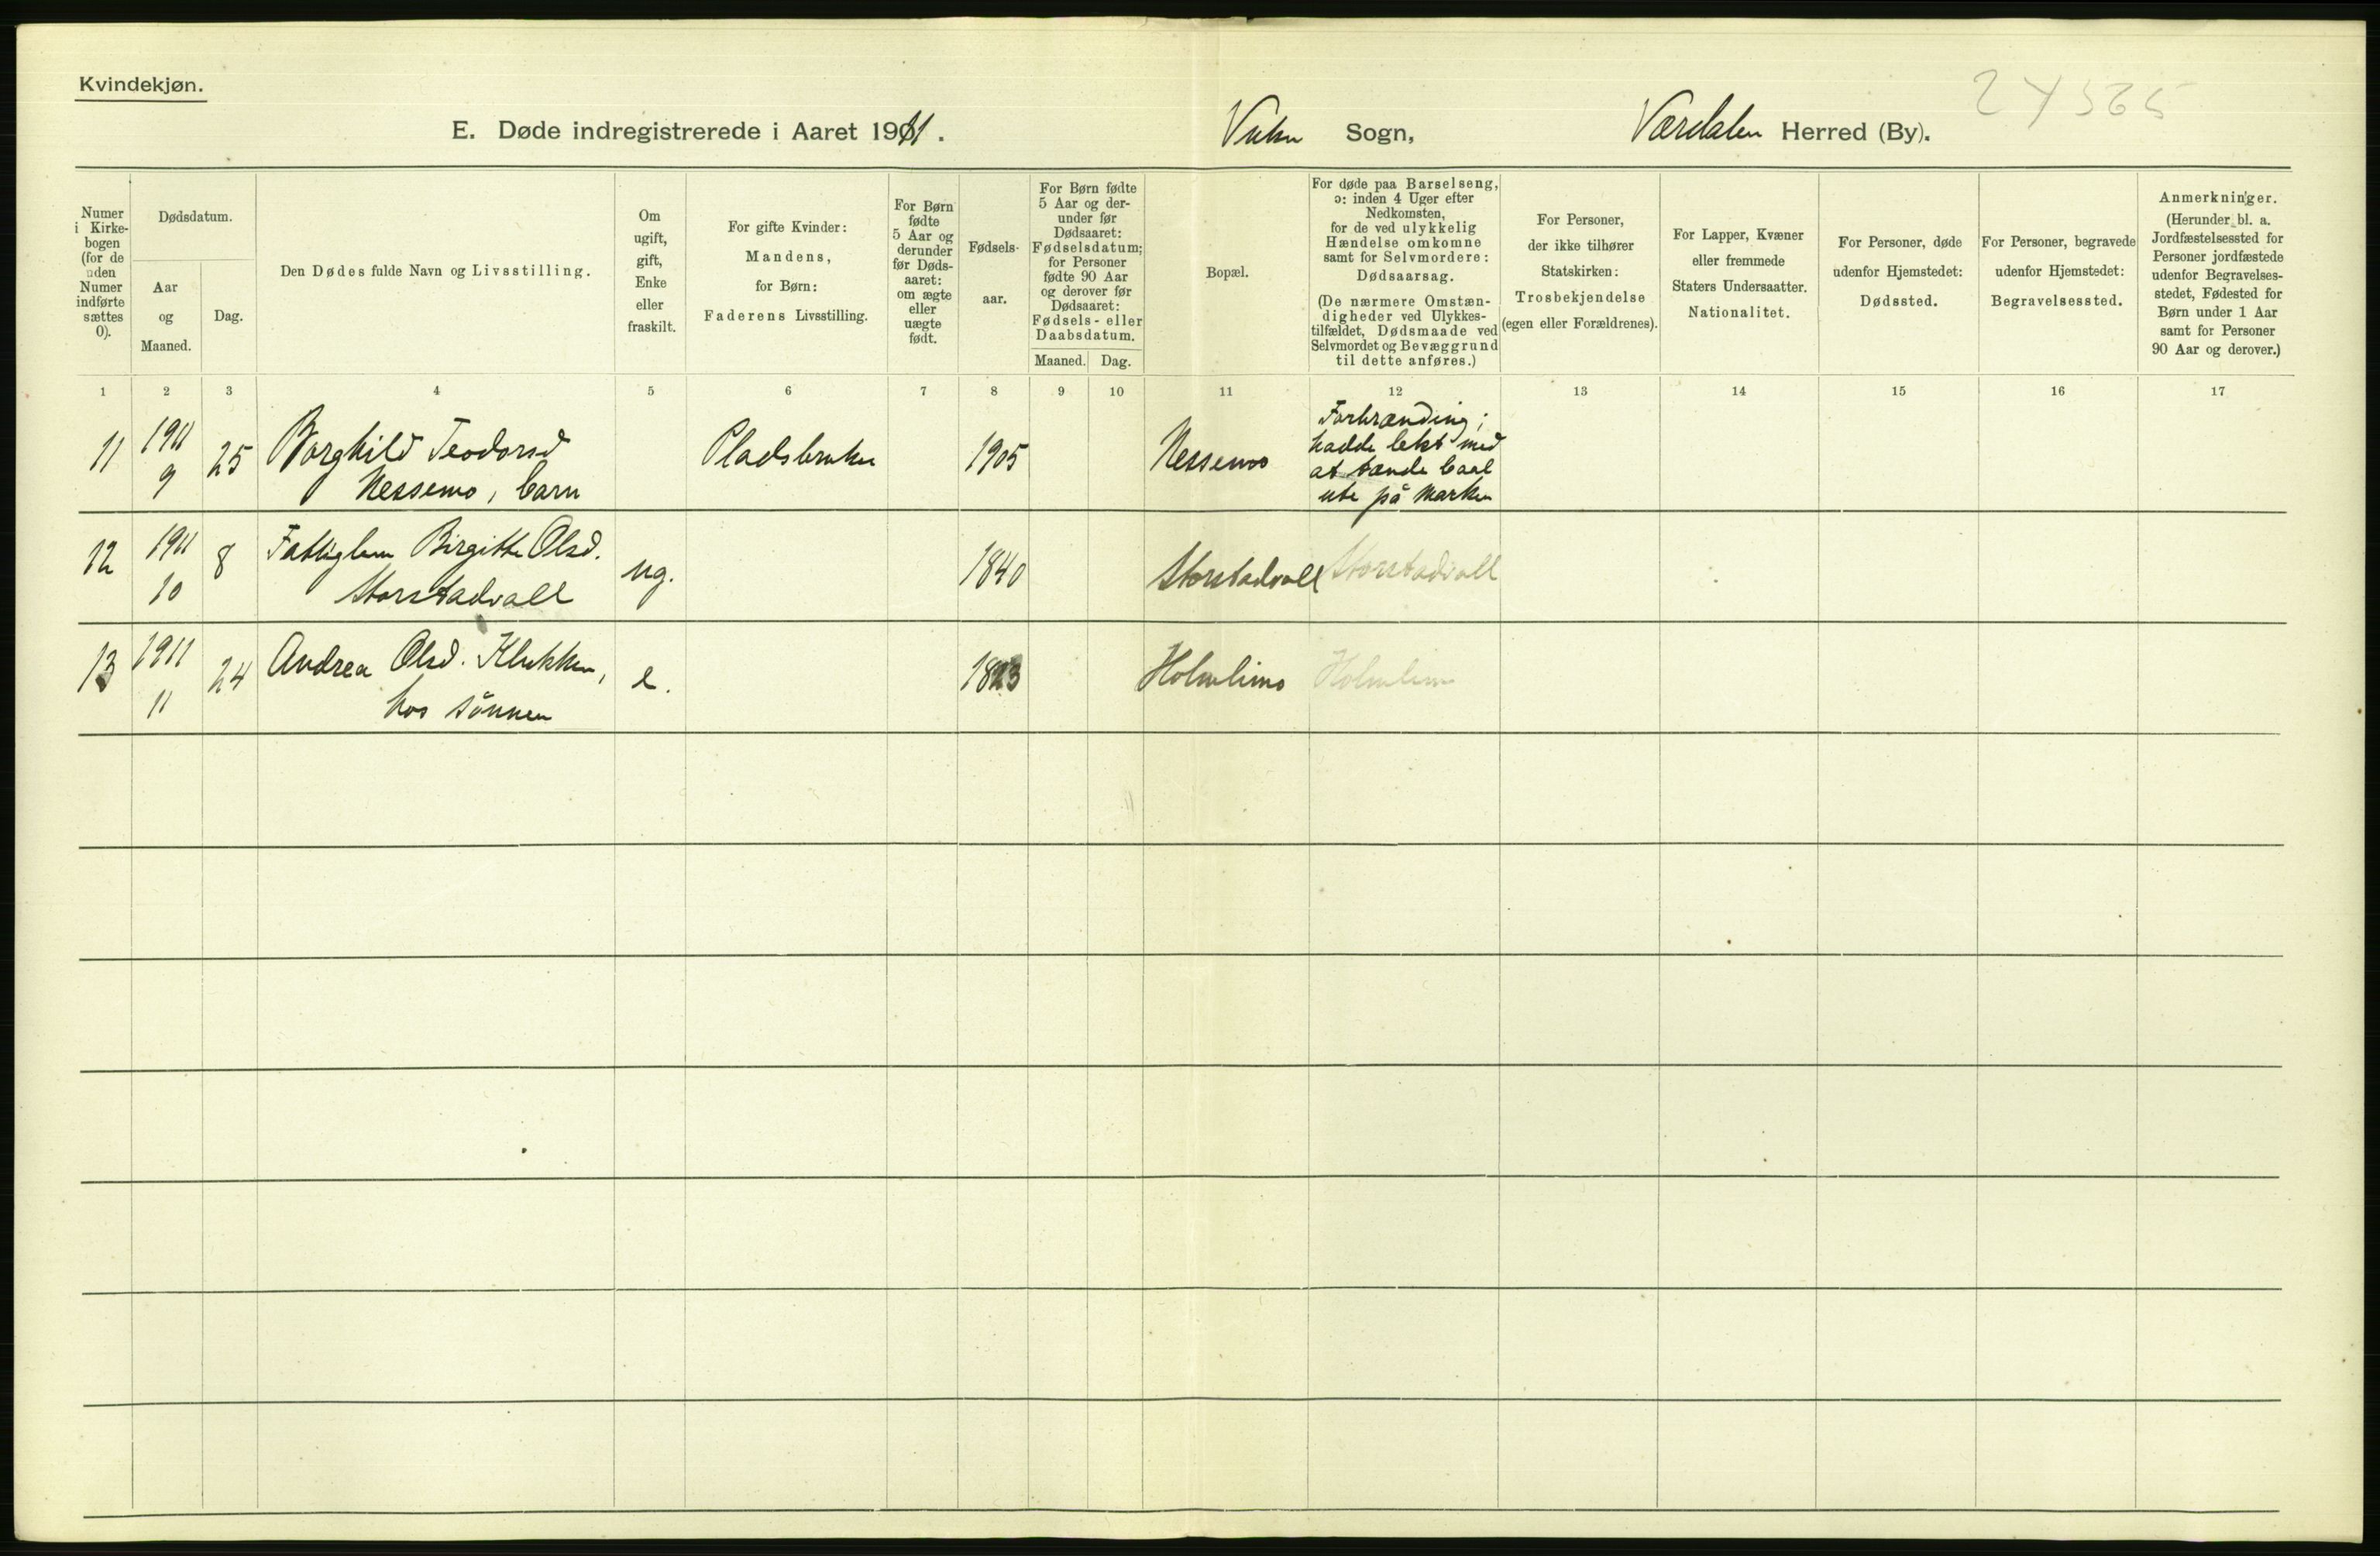 Kvindekjøn.
24565
E. Døde indregistrerede i Aaret 1911. Vuku Sogn, Værdalen Herred (By).
Numer i Kirkebogen (for de uden Numer indførte sættes 0).
Dødsdatum.
Aar og Maaned.
Dag.
Den Dødes fulde Navn og Livsstilling.
Om ugift, gift, Enke eller fraskilt.
For gifte Kvinder: Mandens, for Børn: Faderens Livsstilling.
For Børn fødte 5 Aar og derunder før Dødsaaret: om ægte eller uægte født.
Fødselsaar.
For Børn fødte 5 Aar og derunder før Dødsaaret: Fødselsdatum; for Personer fødte 90 Aar og derover før Dødsaaret: Fødsels- eller Daabsdatum.
Maaned. Dag.
Bopæl.
For døde paa Barselseng, ɔ: inden 4 Uger efter Nedkomsten, for de ved ulykkelig Hændelse omkomne samt for Selvmordere: Dødsaarsag.
(De nærmere Omstændigheder ved Ulykkestilfældet, Dødsmaade ved Selvmordet og Bevæggrund til dette anføres.)
For Personer, der ikke tilhører Statskirken: Trosbekjendelse (egen eller Forældrenes).
For Lapper, Kvæner eller fremmede Staters Undersaatter. Nationalitet.
For Personer, døde udenfor Hjemstedet: Dødssted.
For Personer, begravede udenfor Hjemstedet: Begravelsessted.
Anmerkninger.
(Herunder bl. a. Jordfæstelsessted for Personer jordfæstede udenfor Begravelsesstedet, Fødested for Børn under 1 Aar samt for Personer 90 Aar og derover.)
1 2 3 4 5 6 7 8 9 10 11 12 13 14 15 16 17
11 1911 9 25 Borghild Teodorsd Nessemo, barn Pladsbruker 1905 Nessemo Forbrænding; hadde lekt med at tænde baal ute på marken
12 1911 10 8 Fattiglem Birgitte Olsd. Storstadvall ug. 1840 Storstadvall Storstadvall
13 1911 11 24 Andrea Olsd. Klukken, hos sønnen e. 1823 Holmlimo Holmlimo